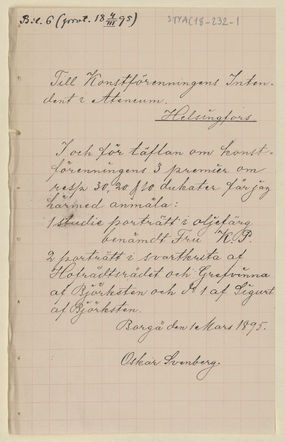 Bil. 6 (prot. 18 4/III 95)
STYAC18-232-1
Till Konstföreningens Inten-
dent i Ateneum.
Helsingfors
I och för täflan om konst-
föreningens 3 premier om
resp 30, 20 & 10 dukater får jag
härmed anmäla:
1 studie porträtt i oljefärg
benämdt Fru K. P.
2 porträtt i svartkrita af
Hofrådtsrådet och Grefvinna
af Björksten och 1 af Sigurt
af Björksten.
Borgå den 1 Mars 1895.
Oskar Svenberg.